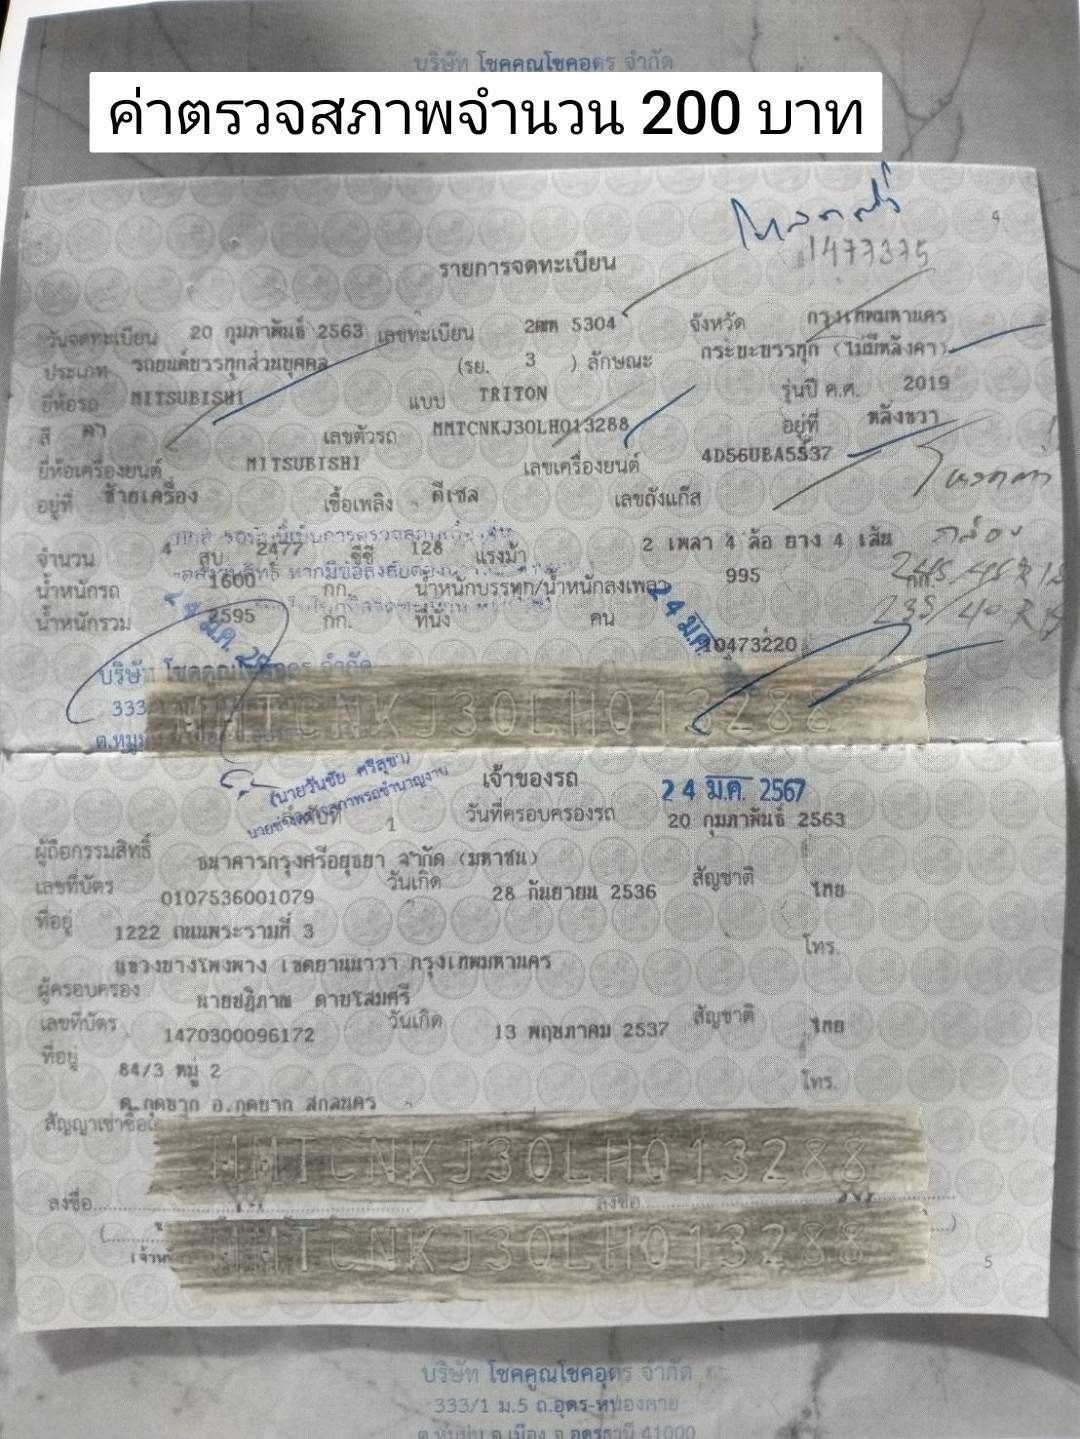 บริษัท โชคคูณโชคอุดร จำกัด
ค่าตรวจสภาพจำนวน 200 บาท
4
1477375
รายการจดทะเบียน
วันจดทะเบียน 20 กุมภาพันธ์ 2563 เลขทะเบียน 5304 จังหวัด กรุงเทพมหานคร
ประเภท รถยนต์บรรทุกส่วนบุคคล (รย. 3 ) ลักษณะ กระบะบรรทุก (ไม่มีหลังคา)
ยี่ห้อรถ MITSUBISHI แบบ TRITON รุ่นปี ค.ศ. 2019
สี ดำ เลขตัวรถ MMTCNKJ30LH013288 อยู่ที่ หลังขวา
ยี่ห้อเครื่องยนต์ MITSUBISHI เลขเครื่องยนต์ 4D56UBA5537
อยู่ที่ ซ้ายเครื่อง เชื้อเพลิง ดีเซล เลขถังแก๊ส
จำนวน 4 สูบ 2477 ซีซี 128 แรงม้า 2 เพลา 4 ล้อ ยาง 4 เส้น
น้ำหนักรถ 1600 กก. น้ำหนักบรรทุก/น้ำหนักลงเพลา 995 กก.
น้ำหนักรวม 2595 กก. ที่นั่ง คน
24 ม.ค.
10473220
บริษัท โชคคูณโชคอุดร จำกัด
MMTCNKJ30LH013288
(นายวันชัย ศรีสุชา)
เจ้าของรถ 24 ม.ค. 2567
ลำดับที่ 1 วันที่ครอบครองรถ 20 กุมภาพันธ์ 2563
ผู้ถือกรรมสิทธิ์ ธนาคารกรุงศรีอยุธยา จำกัด (มหาชน)
เลขที่บัตร 0107536001079 วันเกิด 28 กันยายน 2536 สัญชาติ ไทย
ที่อยู่ 1222 ถนนพระรามที่ 3
แขวงบางโพงพาง เขตยานนาวา กรุงเทพมหานคร โทร.
ผู้ครอบครอง นายปฏิภาณ ดาบโสมศรี
เลขที่บัตร 1470300096172 วันเกิด 13 พฤษภาคม 2537 สัญชาติ ไทย
ที่อยู่ 84/3 หมู่ 2 โทร.
ต.กุดบาก อ.กุดบาก สกลนคร
สัญญาเช่าซื้อ
MMTCNKJ30LH013288
ลงชื่อ ลงชื่อ
MMTCNKJ30LH013288
5
บริษัท โชคคูณโชคอุดร จำกัด
333/1 ม.5 ถ.อุดร-หนองคาย
ต.หมูม่น อ.เมือง จ.อุดรธานี 41000